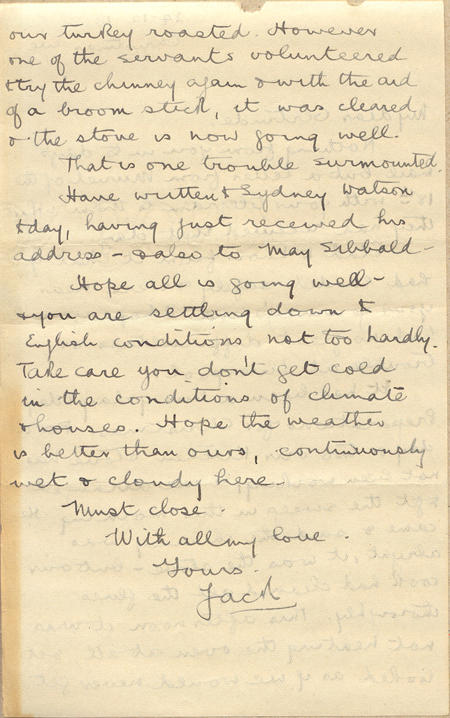 our turkey roasted. However
one of the servants volunteered
to try the chimney again & with the aid
of a broom stick, it was cleared
& the stove is now going well.
That is one trouble surmounted.
Have written to Sydney Watson
today, having just received his
address – & also to May Sibbald –
Hope all is going well –
& you are settling down to
English conditions not too hardly.
Take care you don't get cold
in the conditions of climate
& houses. Hope the weather
is better than ours, continuously
wet & cloudy here –
Must close.
With all my love.
Yours.
Jack